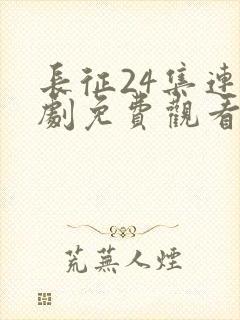 長征24集連
劇免費觀看
荒蕪人煙